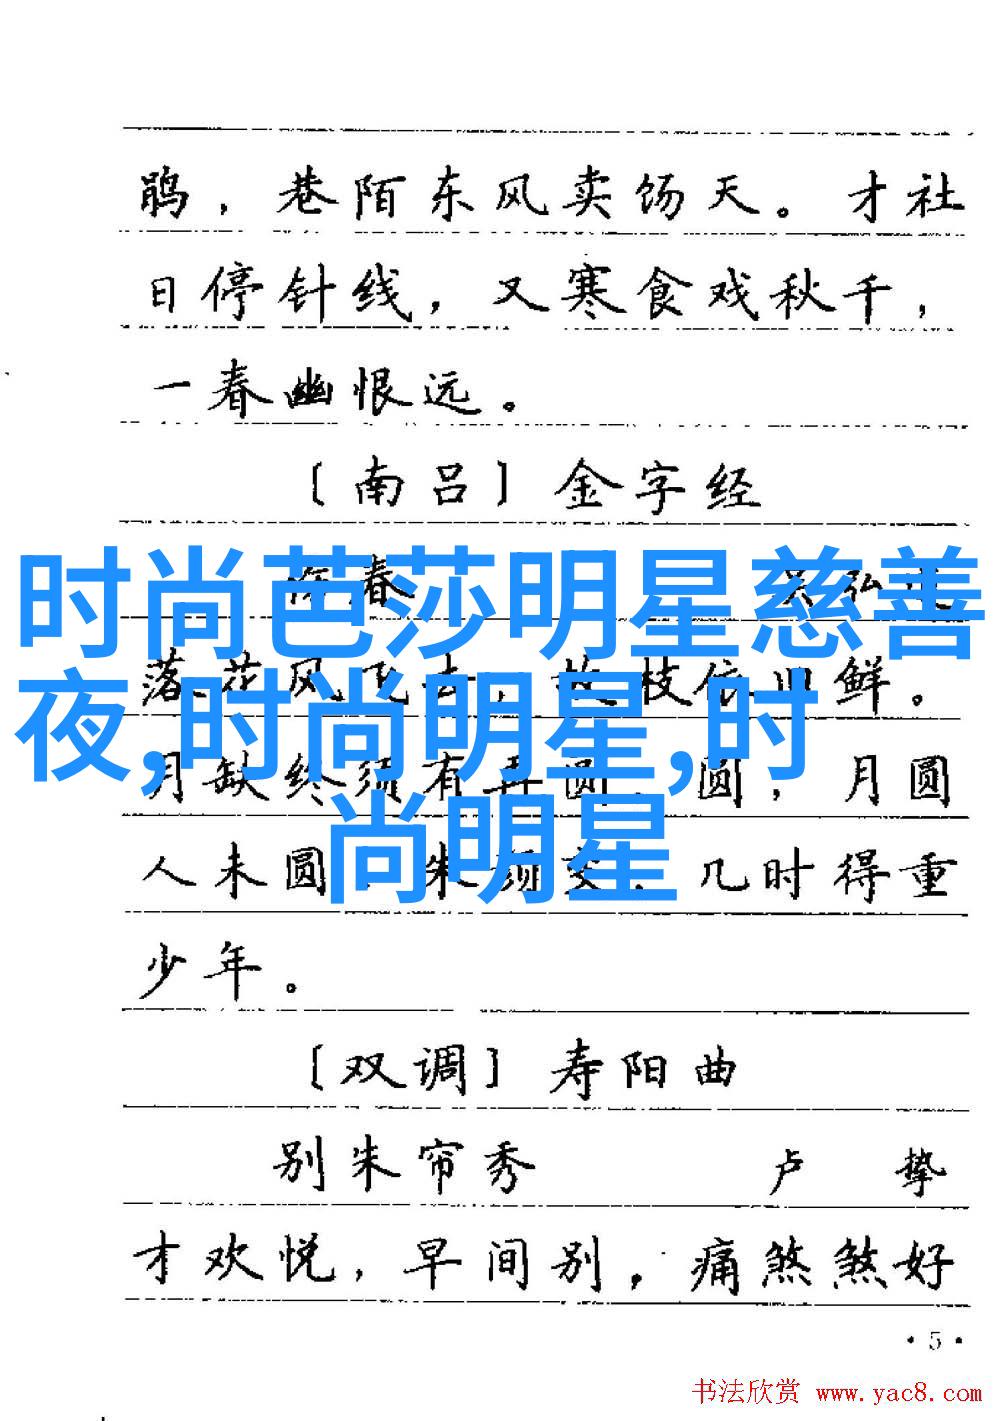 鹃，巷陌东风卖饧天。才社
日停针线，又寒食戏秋千，
一春幽恨远。
〔南吕〕金字经
春
时尚芭莎明星慈善
落花风飞去，故枝依旧鲜。
夜,时尚明星,时
月缺终须有再圆。圆，月圆
尚明星
人未圆。朱颜变，几时得重
少年。
〔双调〕寿阳曲
别朱帘秀 卢挚
才欢悦，早间别，痛煞煞好
·5·
书法欣赏 www.yac8.com